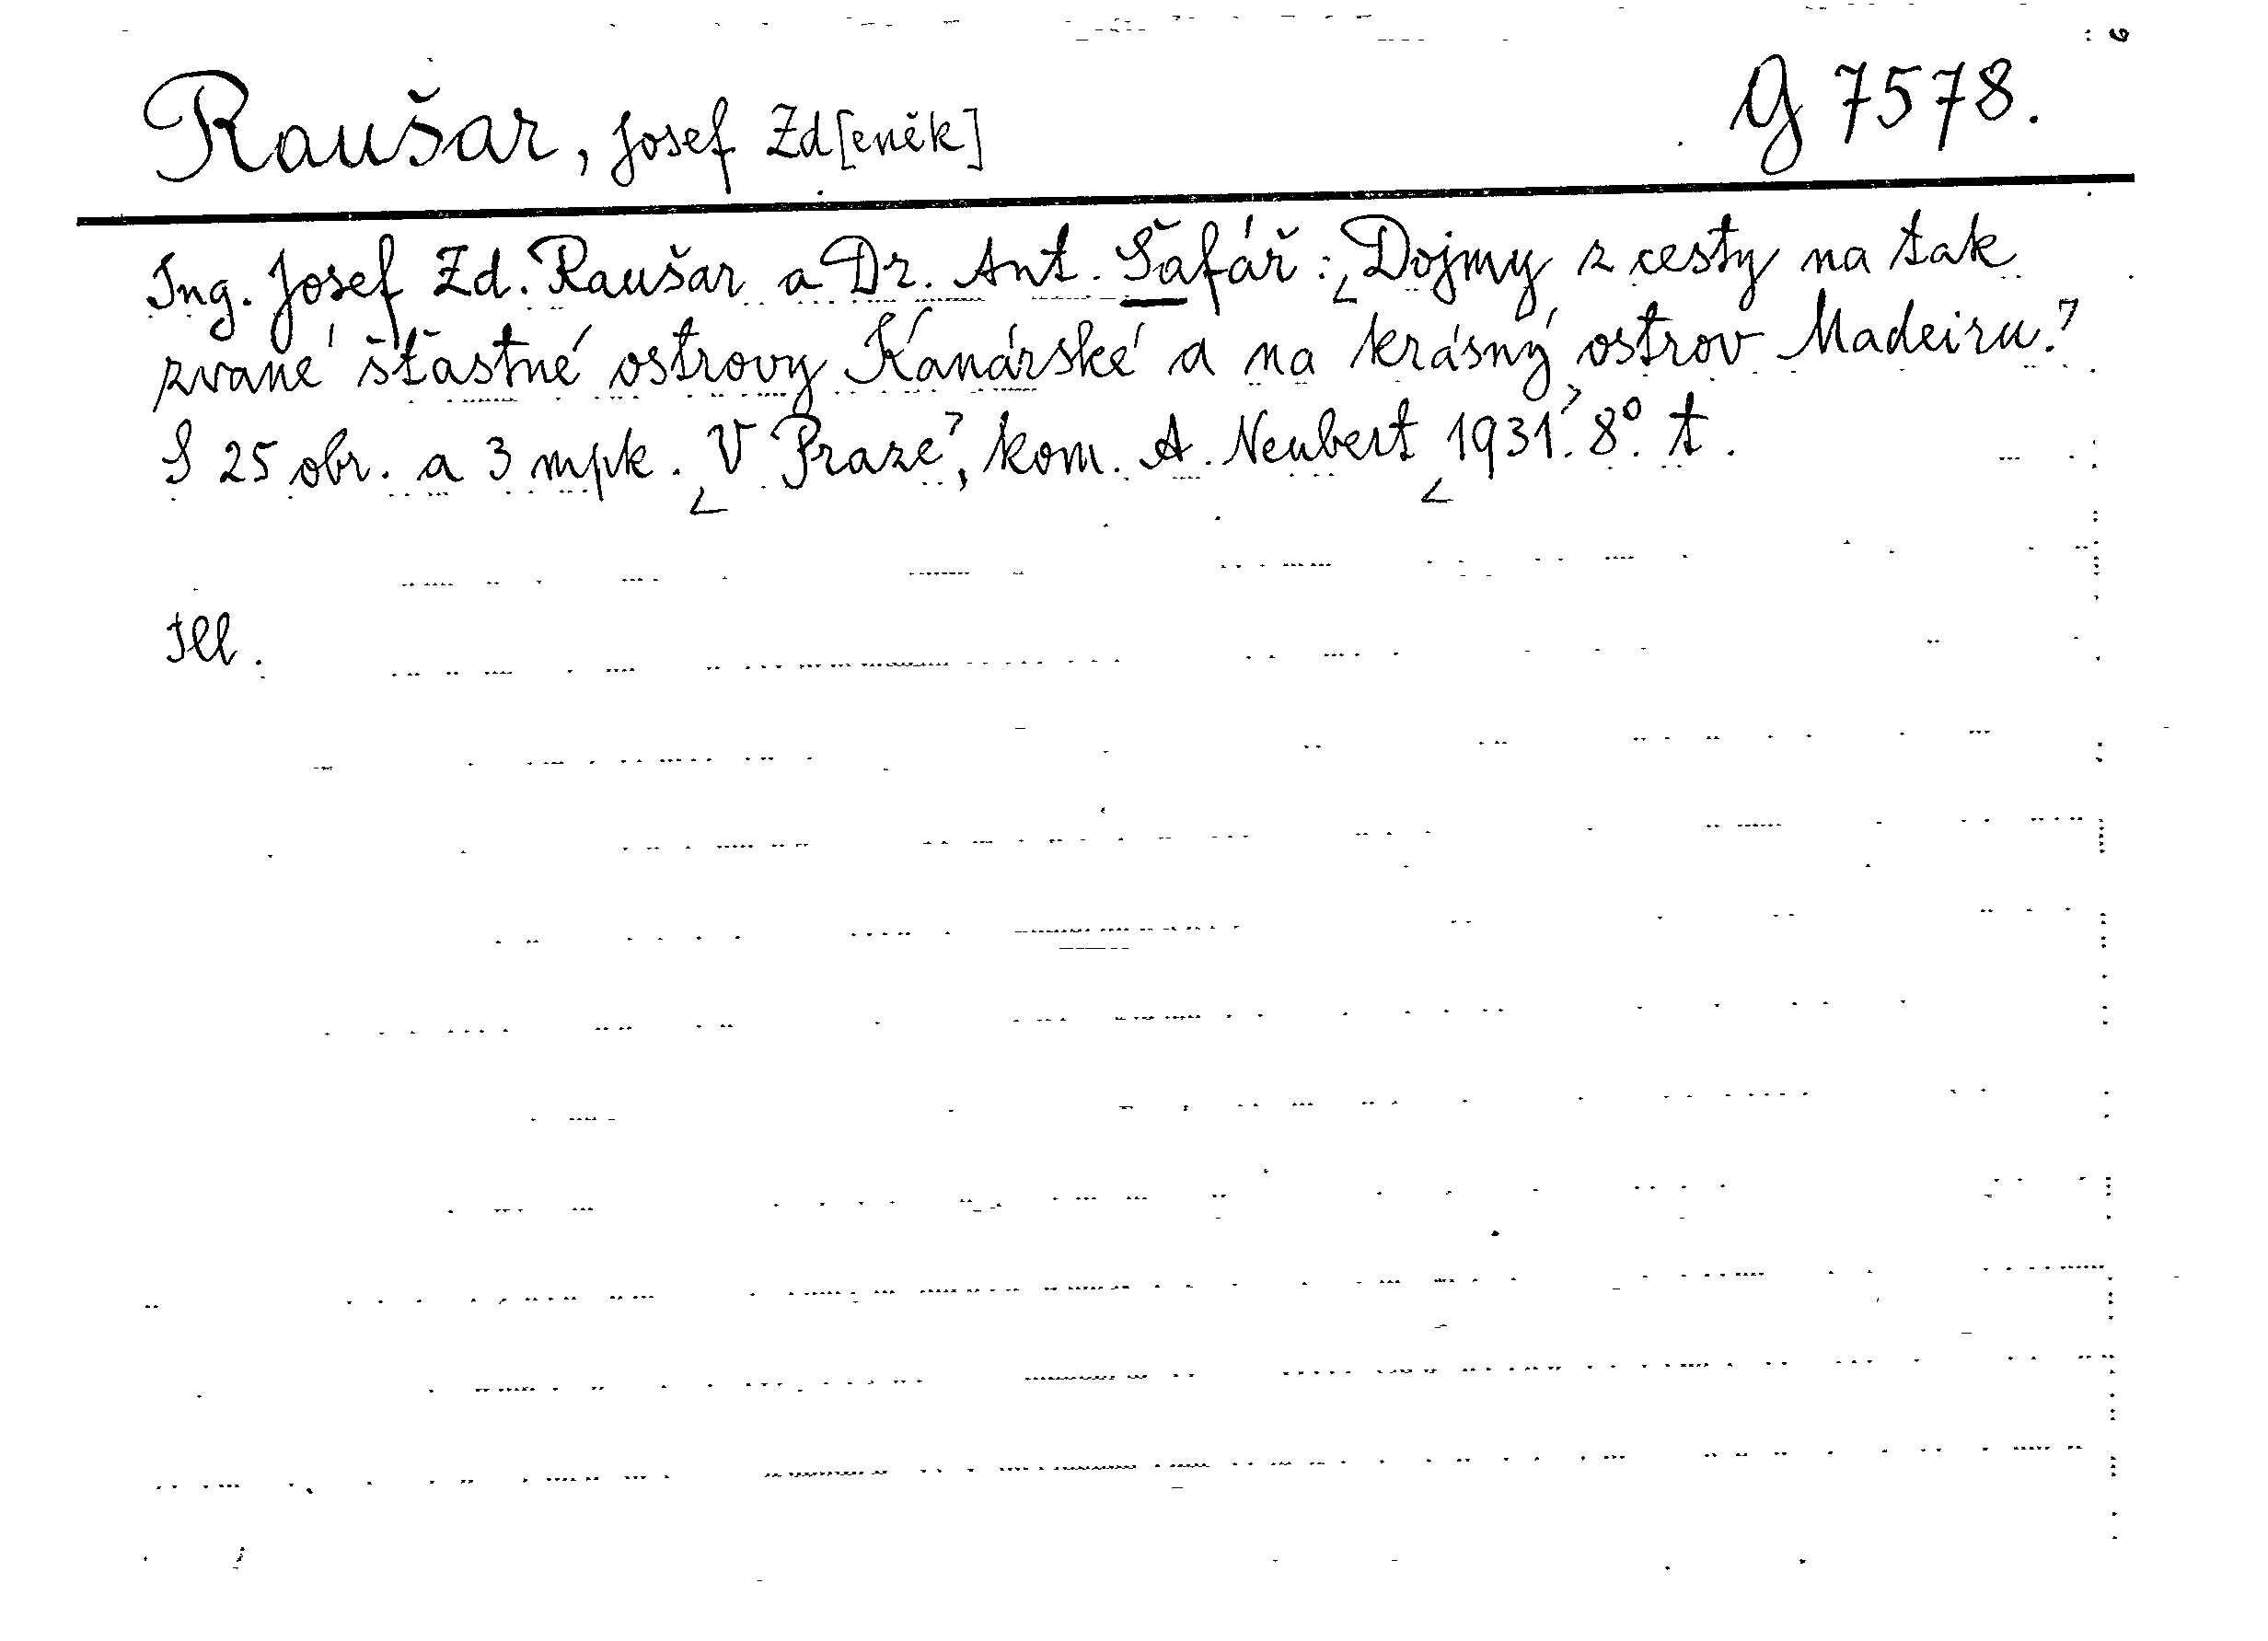 Raušar, Josef Zd[eněk] G 7578.
Ing. Josef Zd. Raušar a Dr. Ant. Šafář: Dojmy z cesty na tak
zvané šťastné ostrovy Kanárské a na krásný ostrov Madeiru.
S 25 obr. a 3 mpk. V Praze, kom. A. Neubert 1931. 8° t.
Ill.